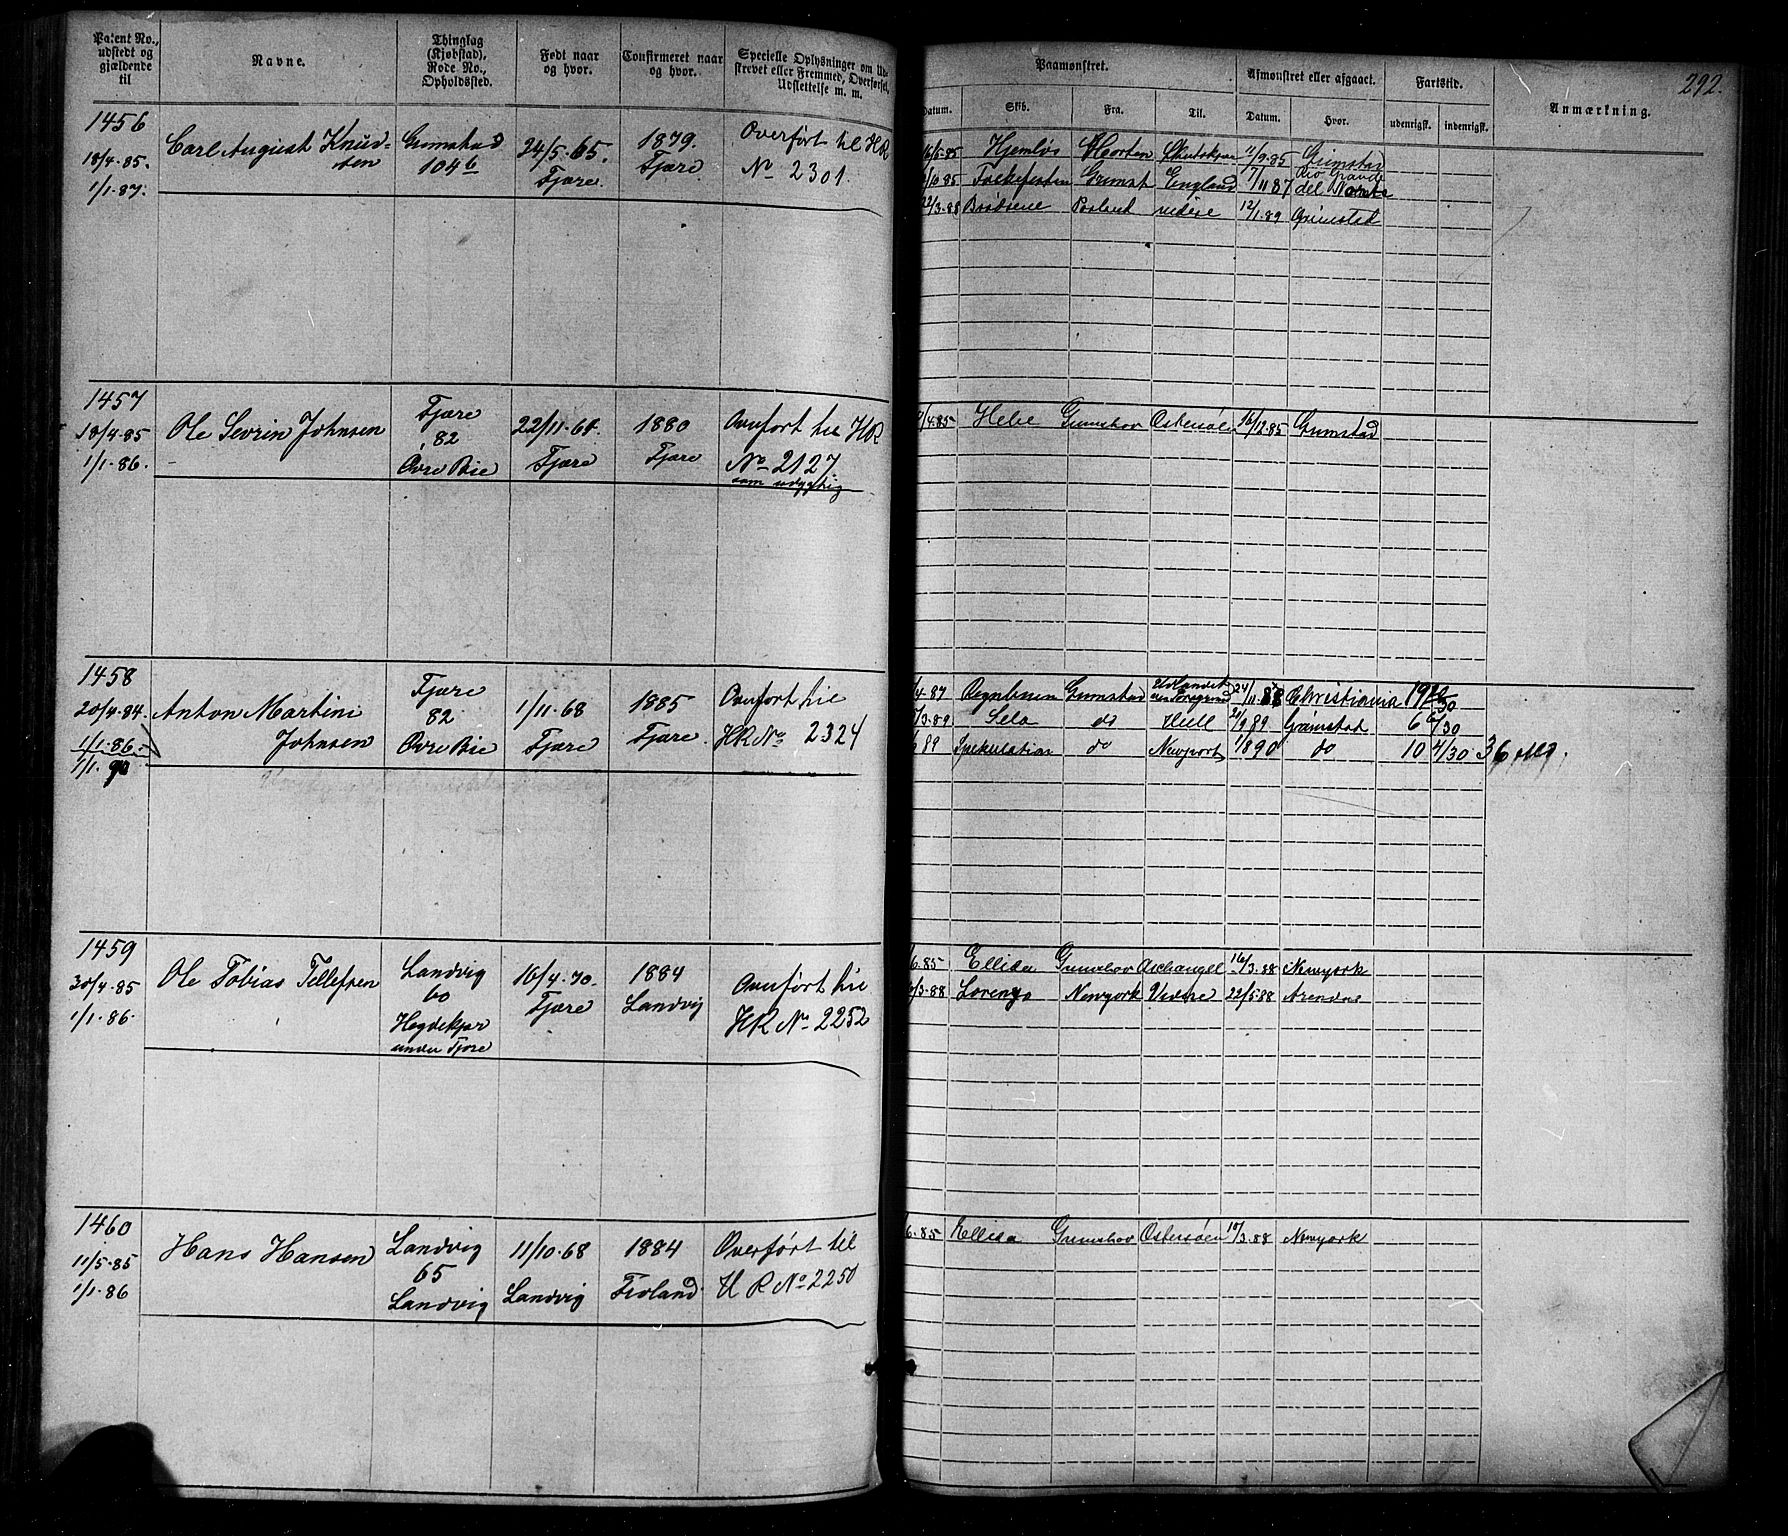 Patent No., udstedt og gjældende til
Navne.
Thinglag (Kjøbstad), Rode No., Opholdssted.
Født naar og hvor.
Confirmeret naar og hvor.
Specielle Oplysninger om Ud-
skrevet eller Fremmed, Overførsel,
Udslettelse m. m.
Paamønstret.
Datum.
Skib.
Fra.
Til.
Afmønstret eller afgaaet.
Datum.
Hvor.
Fartstid.
udenrigsk.
indenrigsk.
Anmærkning.
292.
1456
18/4.85.
1/1.87.
Carl August Knud-
sen
Grimstad
104b
24/5.65.
Fjære.
1879.
Fjære
Overført til HR
No 2301
16/5.85 Hjemløs Horten 11/9.85 Grimstad
/10 85 Folkefesten Grimst England 7/11 87 Rio Grande
del Norte
22/3.88 Brødrene Porland videre 12/1.89 Grimstad
1457
18/4.85
1/1.86.
Ole Sevrin Johnsen
Fjære
82
Øvre Bie
22/11.65.
Fjære
1880
Fjære
Overført til HR
No 2127
som udygtig
/4.85 Hebe Grimshav Østersøen 16/12.85 Grimstad
1458
20/4.84.
1/1.86.
1/1.90
Anton Martin
Johnsen
Fjære
82
Øvre Bie
1/11.68
Fjære
1885
Fjære
Overført til
HR No 2324
/4.87 Regnbuen Grimstad 24/11.88 Christiania 19 /30
/3.89 Sela do Hull 21/9 89 Grimstad 6 6/30
89 Spekulation do Newport 1/8 90 do 10 4/30 36 Md.
1459
30/4.85
1/1.86.
Ole Tobias Tellefsen
Landvig
60
Hegdekjær
under Fjære
16/4.70.
Fjære
1884
Landvig
Overført til
HR No 2252
6.85 Ellida Grimshav Archangel 16/3.88 Newyork
/3.88 Lorenzo Newyork Videre 22/5 88 Arendal
1460
11/5.85
1/1.86
Hans Hansen
Landvig
65
Landvig
11/10.68
Landvig
1884
Froland
Overført til
HR No 2250
6.85 Ellida Grimshav Østersøen 17/3.88 Newyork